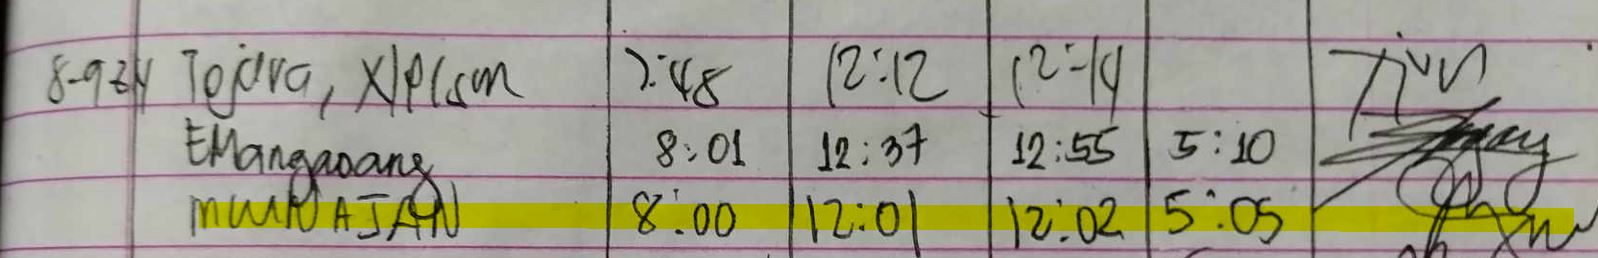 8-924 Tejdra, Nelson 7:48 12:12 12:14
EMangaoang 8:01 12:37 12:55 5:10
AJAN 8:00 12:01 12:02 5:05